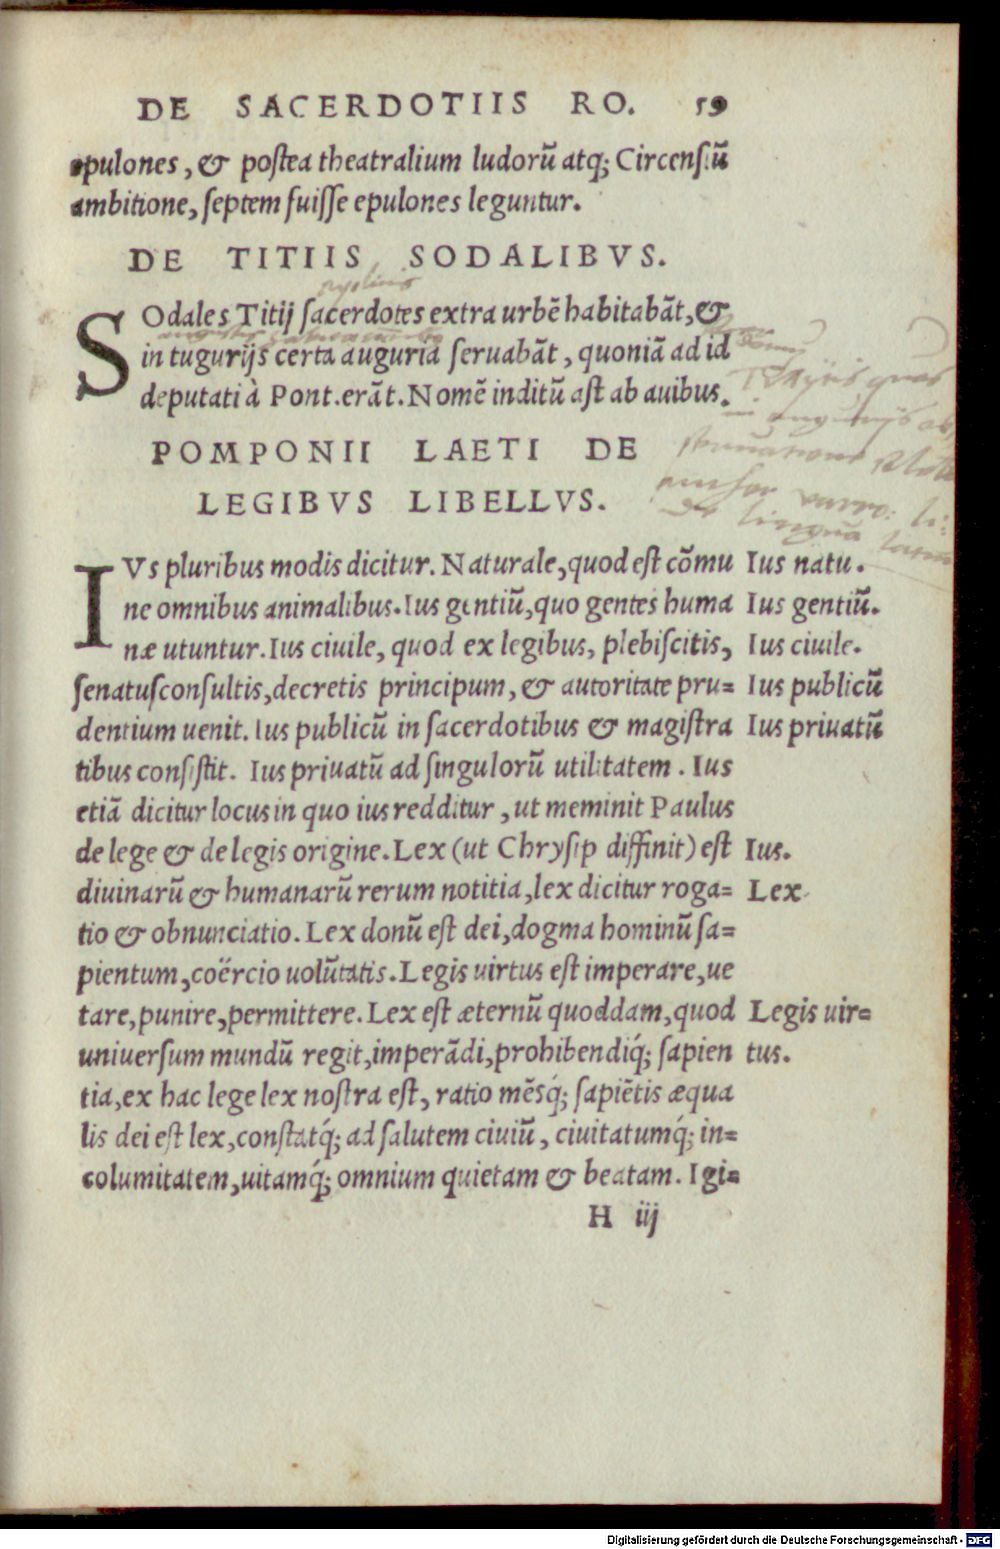 DE SACERDOTIIS RO. 59
epulones, & postea theatralium ludorū atq; Circensiū
ambitione, septem fuisse epulones leguntur.
DE TITIIS SODALIBVS.
SOdales Titij sacerdotes extra urbē habitabāt, &
in tugurijs certa auguria seruabāt, quoniā ad id
deputati à Pont. erāt. Nomē inditū ast ab auibus.
POMPONII LAETI DE
LEGIBVS LIBELLVS.
IVs pluribus modis dicitur. Naturale, quod est cōmu Ius natu.
ne omnibus animalibus. Ius gentiū, quo gentes huma Ius gentiū.
næ utuntur. Ius ciuile, quod ex legibus, plebiscitis, Ius ciuile.
senatusconsultis, decretis principum, & autoritate pru= Ius publicū
dentium uenit. Ius publicū in sacerdotibus & magistra Ius priuatū
tibus consistit. Ius priuatū ad singulorū utilitatem. Ius
etiā dicitur locus in quo ius redditur, ut meminit Paulus
de lege & de legis origine. Lex (ut Chrysip diffinit) est Ius.
diuinarū & humanarū rerum notitia, lex dicitur roga= Lex
tio & obnunciatio. Lex donū est dei, dogma hominū sa=
pientum, coërcio uolūtatis. Legis uirtus est imperare, ue
tare, punire, permittere. Lex est æternū quoddam, quod Legis uir=
uniuersum mundū regit, imperādi, prohibendiq́; sapien tus.
tia, ex hac lege lex nostra est, ratio mēsq́; sapiētis æqua
lis dei est lex, constatq́; ad salutem ciuiū, ciuitatumq́; in=
columitatem, uitamq́; omnium quietam & beatam. Igi=
H iij
Digitalisierung gefördert durch die Deutsche Forschungsgemeinschaft - DFG